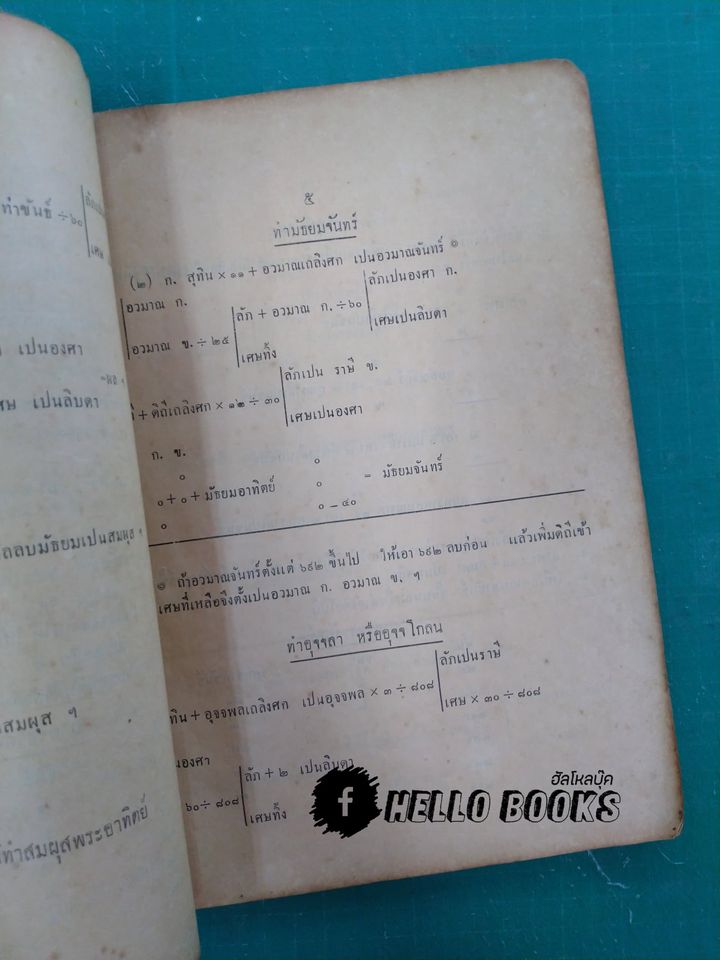 ทำขันธ์ ÷ ๖๐
เปนองศา
เปนลิบดา
ลบมัธยมเปนสมผุส ฯ
สมผุส ฯ
ทำสมผุสพระอาทิตย์
๕
ทำมัธยมจันทร์
(๒) ก. สุทิน × ๑๑ + อวมาณเถลิงศก เปนอวมาณจันทร์ ๑
อวมาณ ก.
อวมาณ ข. ÷ ๒๕
ลัภ + อวมาณ ก. ÷ ๖๐
เศษทิ้ง
ลัภเปนองศา ก.
เศษเปนลิบดา
+ ดิถีเถลิงศก × ๑๒ ÷ ๓๐
ลัภเปน ราษี ข.
เศษเปนองศา
ก. ข.
๐ ๐
๐ + ๐ + มัธยมอาทิตย์ ๐ = มัธยมจันทร์
๐ ๐ – ๔๐
๑ ถ้าอวมาณจันทร์ตั้งแต่ ๖๙๒ ขึ้นไป ให้เอา ๖๙๒ ลบก่อน แล้วเพิ่มดิถีเข้า
เศษที่เหลือจึงตั้งเปนอวมาณ ก. อวมาณ ข. ฯ
ทำอุจจลา หรืออุจจโกลน
ทิน + อุจจพลเถลิงศก เปนอุจจพล × ๓ ÷ ๘๐๘
ลัภเปนราษี
เศษ × ๓๐ ÷ ๘๐๘
นองศา
๖๐ ÷ ๘๐๘
ลัภ + ๒ เปนลิบดา
เศษทิ้ง
ฮัลโหลบุ๊ค
f HELLO BOOKS